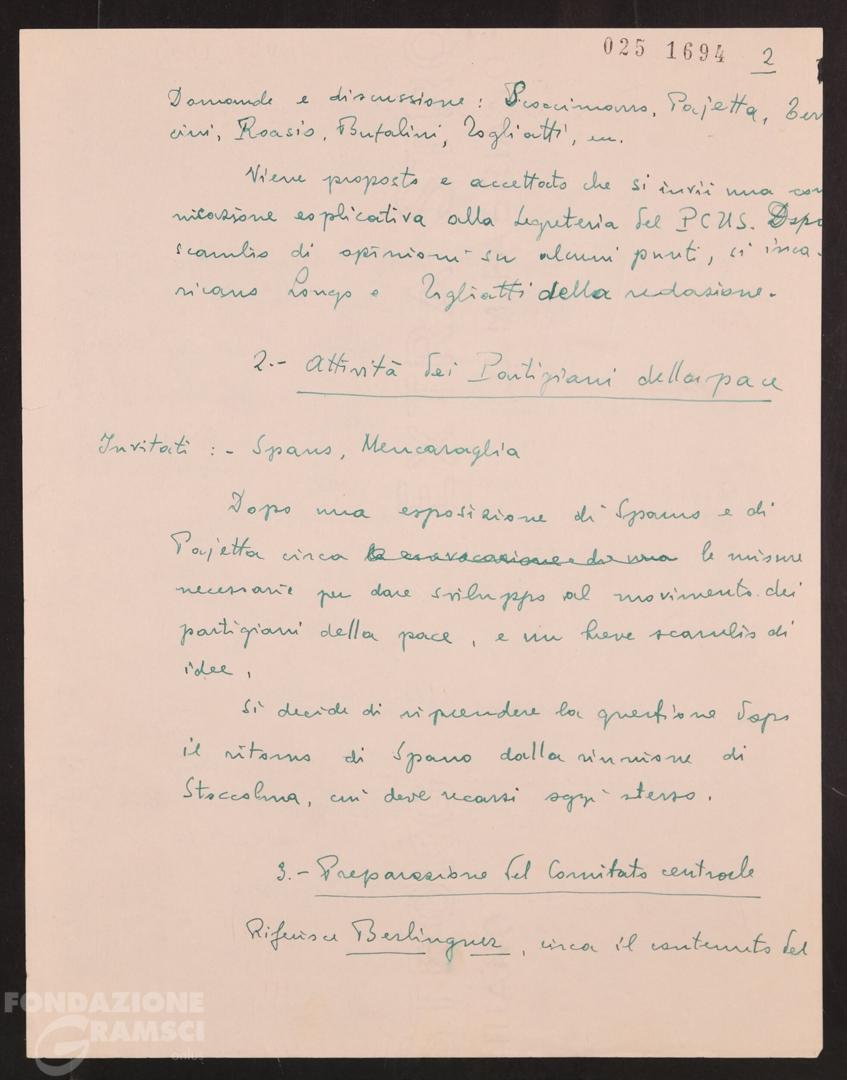 025 1694 2
Domande e discussione: Scoccimarro, Pajetta, Ter
cini, Roasio, Bufalini, Togliatti, ecc.
Viene proposto e accettato che si invii una com
nicazione esplicativa alla Segreteria del PCUS. Dopo
scambio di opinioni su alcuni punti, si inca-
ricano Longo e Togliatti della redazione.
2.- Attività dei Partigiani della pace
Invitati :- Spano, Mencaraglia
Dopo una esposizione di Spano e di
Pajetta circa le misure
necessarie per dare sviluppo al movimento dei
partigiani della pace, e un breve scambio di
idee,
Si decide di riprendere la questione dopo
il ritorno di Spano dalla riunione di
Stoccolma, cui deve recarsi oggi stesso.
3.- Preparazione del Comitato centrale
Riferisce Berlinguer, circa il contenuto del
FONDAZIONE
GRAMSCI
onlus